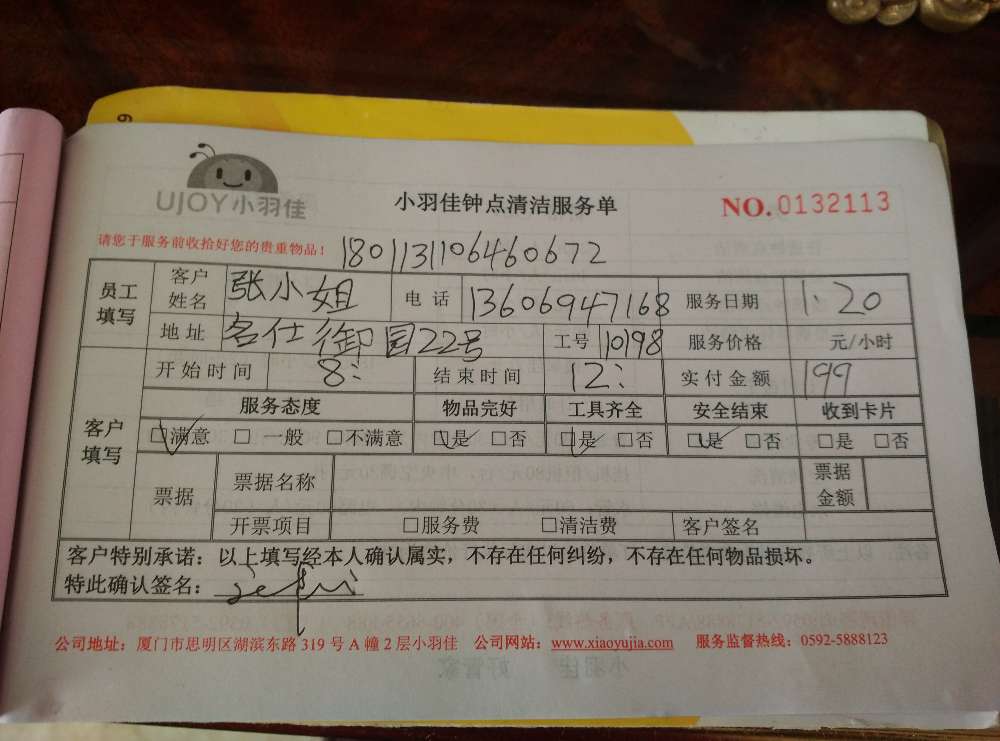 UJOY小羽佳
小羽佳钟点清洁服务单
NO.0132113
请您于服务前收拾好您的贵重物品！
180113110646​0672
员工填写 客户姓名 张小姐 电话 13606947168 服务日期 1.20
地址 名仕御园22号 工号 10198 服务价格 元/小时
客户填写 开始时间 8: 结束时间 12: 实付金额 199
服务态度 物品完好 工具齐全 安全结束 收到卡片
☑满意 □一般 □不满意 ☑是 □否 ☑是 □否 ☑是 □否 □是 □否
票据 票据名称 票据金额
开票项目 □服务费 □清洁费 客户签名
客户特别承诺：以上填写经本人确认属实，不存在任何纠纷，不存在任何物品损坏。
特此确认签名：
公司地址：厦门市思明区湖滨东路319号A幢2层小羽佳 公司网站：www.xiaoyujia.com 服务监督热线：0592-5888123